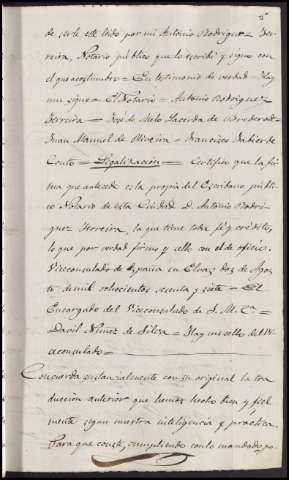 2º
de serle este leido por mi Antonio Rodriguez Fer-
reira, Notario público que lo escribí y signo con
el que acostumbro = En testimonio de verdad = Hay
un signo = El Notario = Antonio Rodriguez
Ferreira = José de Melo Lacerda de
Juan Manuel de Oliveira = Francisco Xabier de
Couto = Legalizacion = Certifico que la fir
ma que antecede es la propia del Escribano públi
co Notario de esta Ciudad D. Antonio Rodri
guez Ferreira, la que tiene toda fé y crédito,
lo que por verdad firmo y sello con el de oficio.
Viceconsulado de España en Elvas, dos de Agos
to de mil ochocientos sesenta y siete = El
Encargado del Viceconsulado de S. M. Cª =
David Nunez da Silva = Hay un sello del Vi
ceconsulado =
Concuerda sustancialmente con su original la tra
duccion anterior que hemos hecho bien y fiel
mente segun nuestra inteligencia y práctica.
Para que conste, cumpliendo con lo mandado, po-